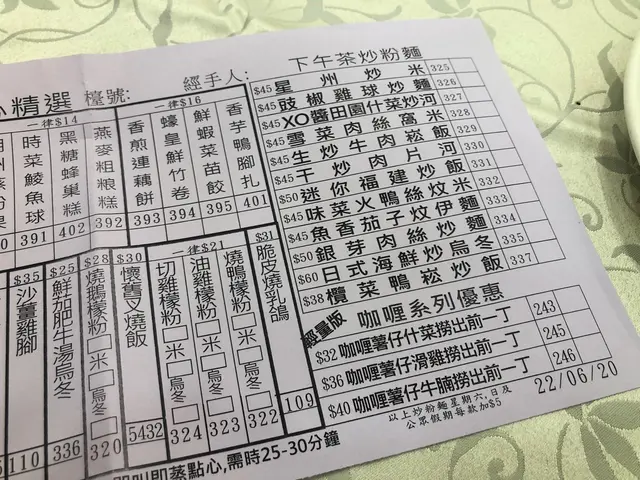 精選 檯號: 經手人:
一律$14
時菜鯪魚球 391
黑糖蜂巢糕 402
燕麥粗粮糕 392
一律$16
香煎連藕餅 393
蠔皇鮮竹卷 394
鮮蝦菜苗餃 395
香芋鴨腳扎 401
$35 沙薑雞腳 110
$25 鮮茄肥牛湯烏冬 336
$28 燒鵝檬粉 米 烏冬 320
$30 懷舊叉燒飯 5432
一律$21
切雞檬粉 米 烏冬 324
油雞檬粉 米 烏冬 323
燒鴨檬粉 米 烏冬 322
$31 脆皮燒乳鴿 109
下午茶炒粉麵
$45 星州炒米 325
$45 豉椒雞球炒麵 326
$45 XO醬田園什菜炒河 327
$45 雪菜肉絲窩米 328
$45 生炒牛肉崧飯 329
$45 干炒肉片河 330
$50 迷你福建炒飯 331
$45 味菜火鴨絲炆米 332
$45 魚香茄子炆伊麵 333
$50 銀芽肉絲炒麵 334
$60 日式海鮮炒烏冬 335
$38 欖菜鴨崧炒飯 337
輕量版 咖喱系列優惠
$32 咖喱薯仔什菜撈出前一丁 243
$36 咖喱薯仔滑雞撈出前一丁 245
$40 咖喱薯仔牛腩撈出前一丁 246
以上炒粉麵星期六,日及
公眾假期每款加$5
22/06/20
即叫即蒸點心,需時25-30分鐘